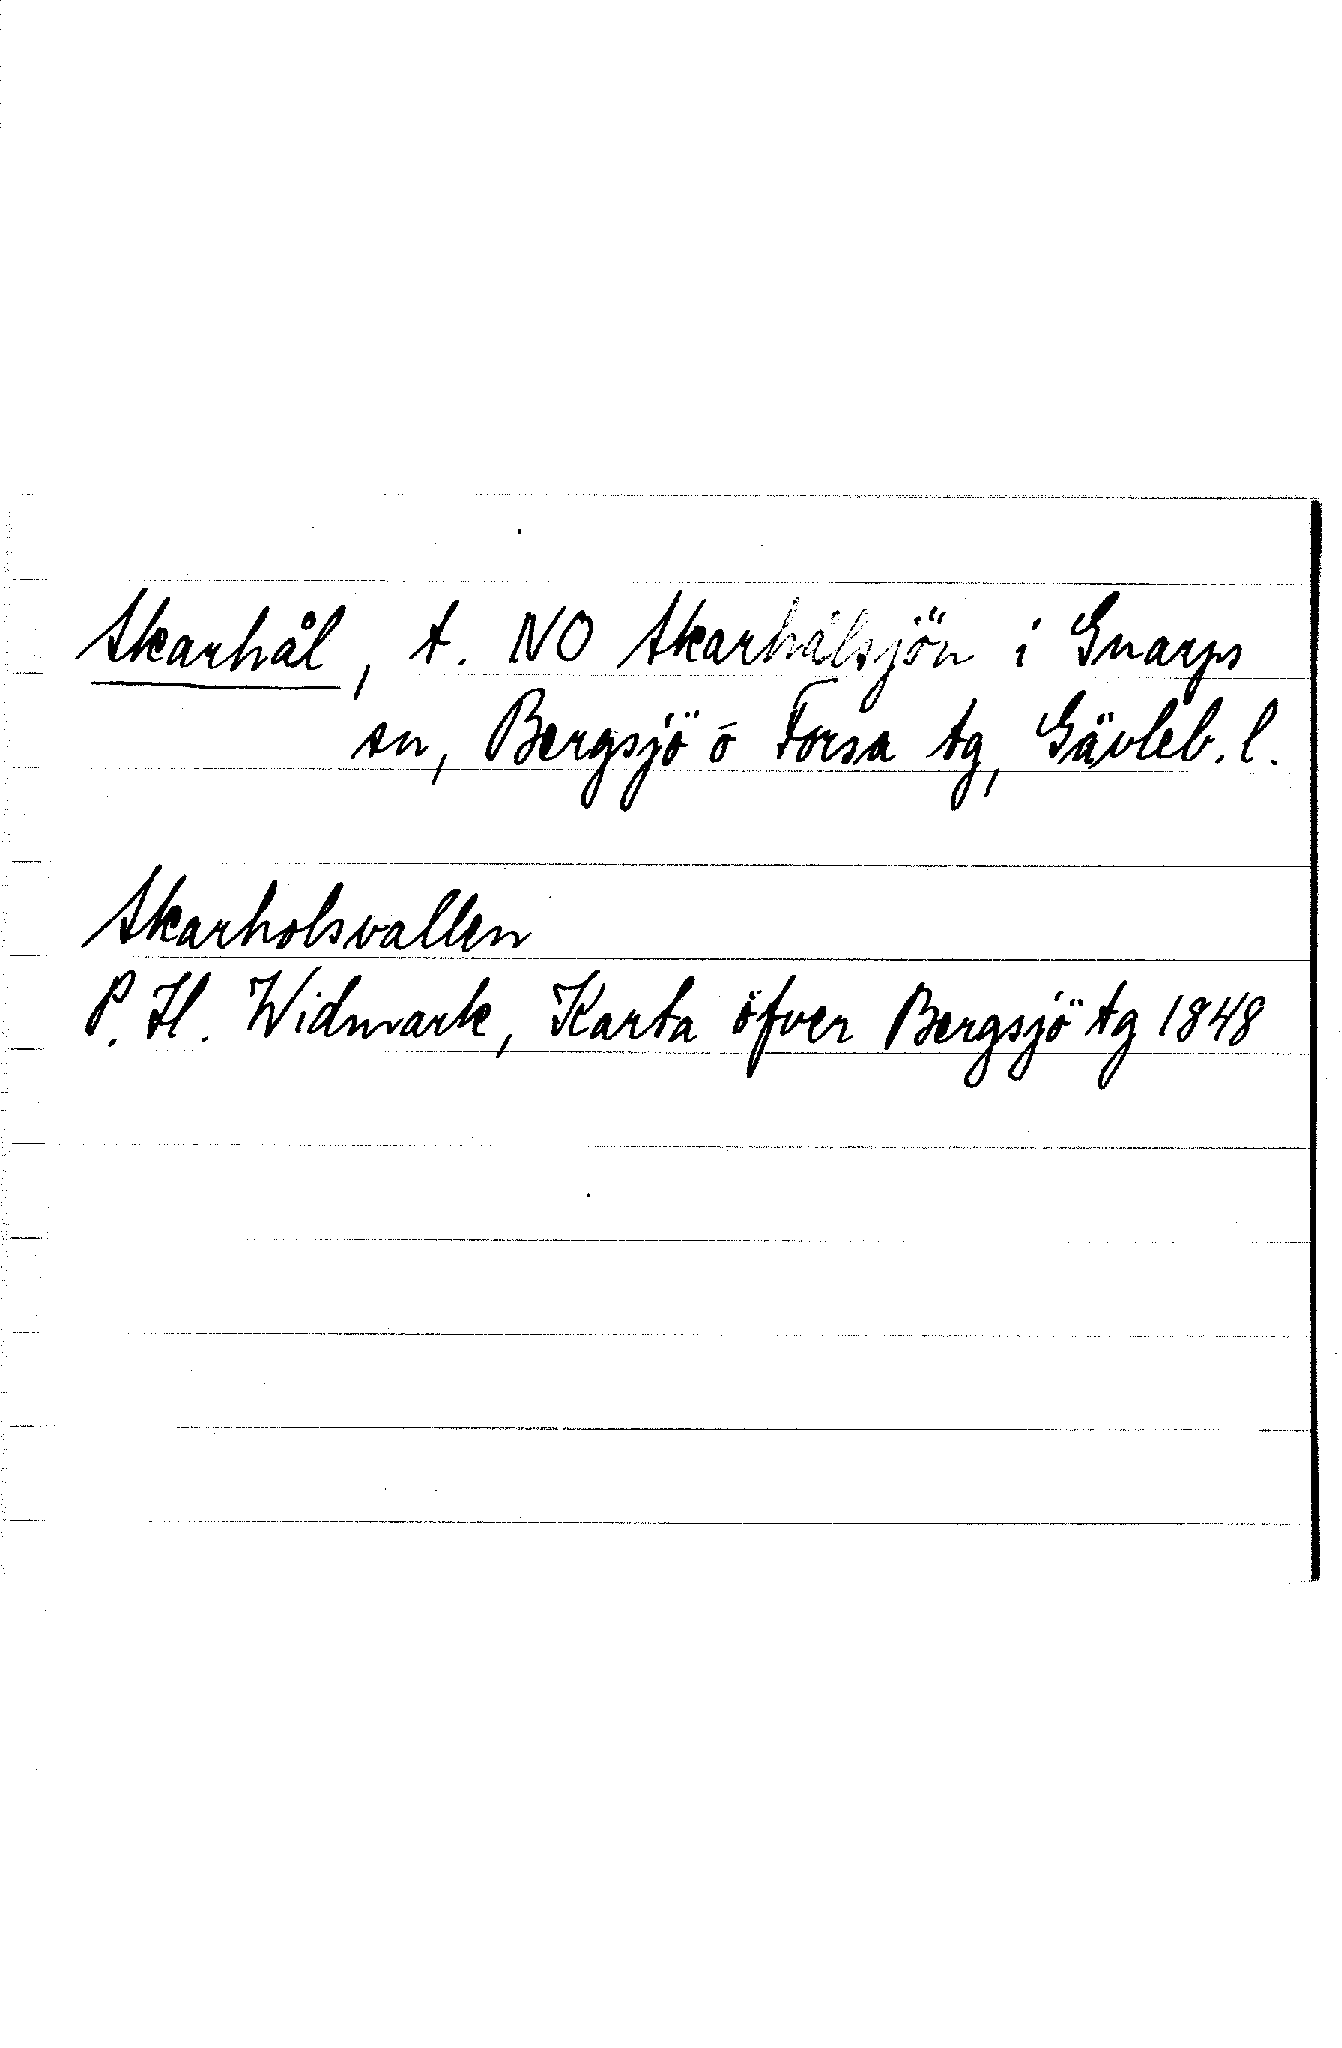 Skarhål, t. NO Skarhålsjön i Gnarps
sn, Bergsjö o Forsa tg, Gävleb. l.
Skarholsvallen
P. H. Widmark, Karta öfver Bergsjö tg 1848